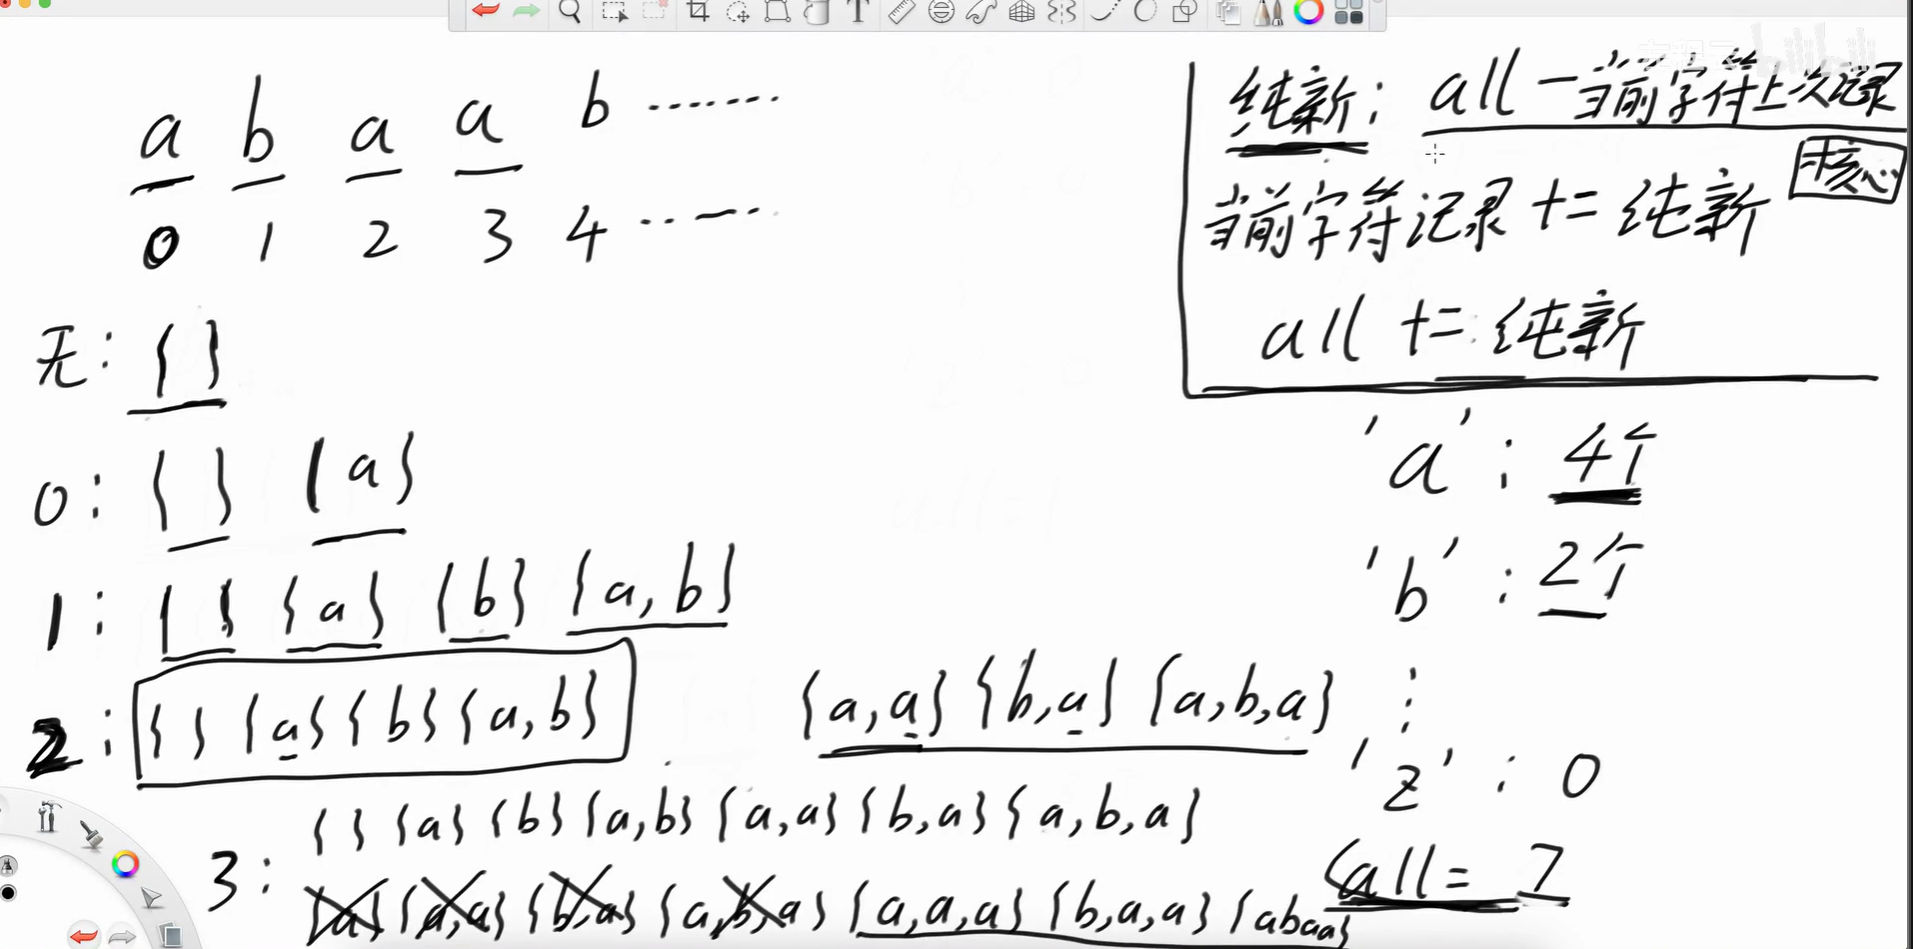 a b a a b ........
0 1 2 3 4 ........
无: { }
0: { } {a}
1: { } {a} {b} {a, b}
2: { } {a} {b} {a, b} {a, a} {b, a} {a, b, a}
3: { } {a} {b} {a, b} {a, a} {b, a} {a, b, a}
{a} {a, a} {b, a} {a, b, a} {a, a, a} {b, a, a} {abaa}
纯新: all - 当前字符上次记录
核心
当前字符记录 += 纯新
all += 纯新
'a': 4个
'b': 2个
⋮
'z': 0
all = 7